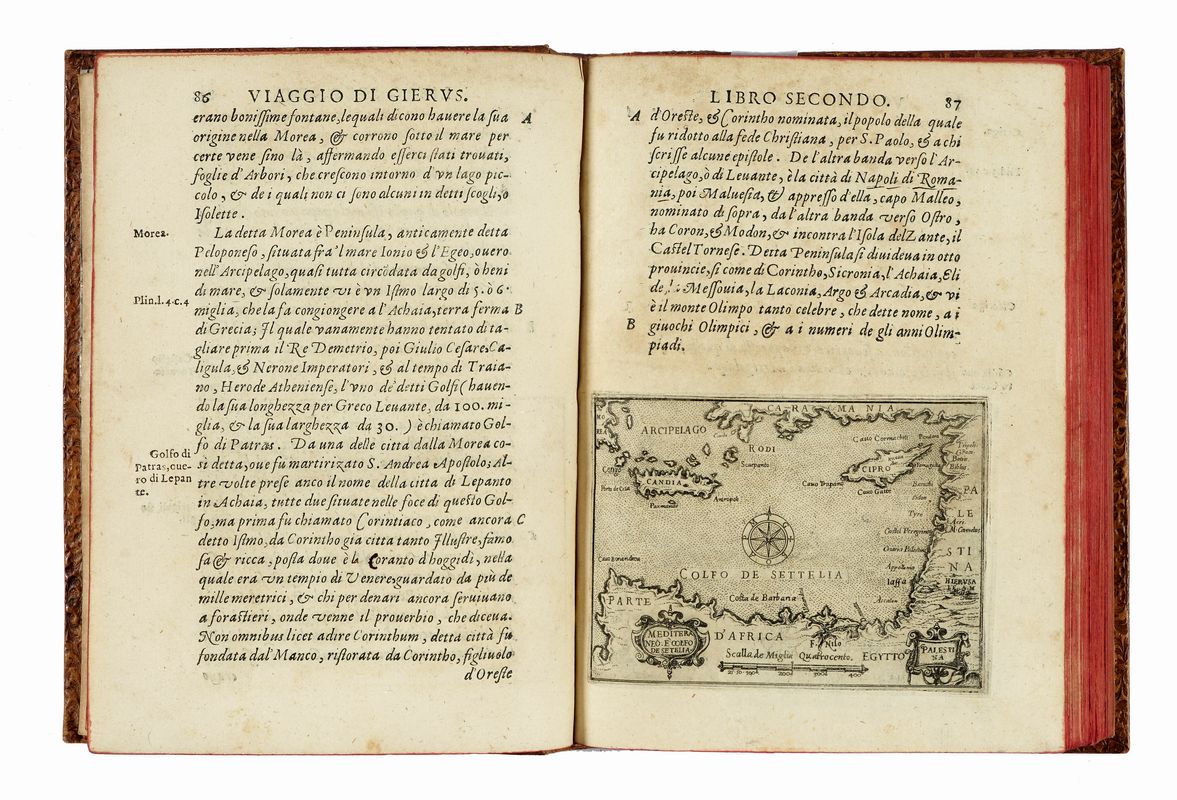 86 VIAGGIO DI GIERVS.
erano bonissime fontane, lequali dicono hauere la sua A
origine nella Morea, & corrono sotto il mare per
certe vene sino là, affermando esserci stati trouati,
foglie d'Arbori, che crescono intorno d'vn lago pic-
colo, & de i quali non ci sono alcuni in detti scogli, o
Isolette.
Morea. La detta Morea è Peninsula, anticamente detta
Peloponeso, situata fra'l mare Ionio & l'Egeo, ouero
nell'Arcipelago, quasi tutta circōdata da golfi, ò beni
di mare, & solamente vi è vn Istmo largo di 5. ò 6.
Plin.l.4.c.4 miglia, che la fa congiongere a l'Achaia, terra ferma B
di Grecia; Il quale vanamente hanno tentato di ta-
gliare prima il Re Demetrio, poi Giulio Cesare, Ca-
ligula, & Nerone Imperatori, & al tempo di Traia-
no, Herode Atheniense, l'vno de detti Golfi (hauen-
do la sua longhezza per Greco Leuante, da 100. mi-
glia, & la sua larghezza da 30.) è chiamato Gol-
fo di Patras. Da una delle città dalla Morea co-
Golfo di
Patras, oue-
ro di Lepan
te.
sì detta, oue fu martirizato S. Andrea Apostolo; Al-
tre volte prese anco il nome della citta di Lepanto
in Achaia, tutte due situate nelle foce di questo Gol-
fo, ma prima fu chiamato Corintiaco, come ancora C
detto Istmo, da Corintho gia citta tanto Illustre, famo
sa & ricca, posta doue è la Coranto d'hoggidì, nella
quale era vn tempio di Venere, guardato da più de
mille meretrici, & chi per denari ancora seruiuano
a forastieri, onde venne il prouerbio, che diceua.
Non omnibus licet adire Corinthum, detta città fu
fondata dal Manco, ristorata da Corintho, figliuolo
d'Oreste
LIBRO SECONDO. 87
A d'Oreste, & Corintho nominata, il popolo della quale
fu ridotto alla fede Christiana, per S. Paolo, & a chi
scrisse alcune epistole. De l'altra banda verso l'Ar-
cipelago, ò di Leuante, è la città di Napoli di Roma-
nia, poi Maluesia, & appresso d'ella, capo Malleo,
nominato di sopra, da l'altra banda verso Ostro,
ha Coron, & Modon, & incontra l'Isola del Zante, il
Castel Tornese. Detta Peninsula si diuideua in otto
prouincie, si come di Corintho, Sicronia, l'Achaia, Eli
de, Messouia, la Laconia, Argo & Arcadia, & vi
è il monte Olimpo tanto celebre, che dette nome, a i
B giuochi Olimpici, & a i numeri de gli anni Olim-
piadi.
CARAMANIA
ARCIPELAGO
RODI
Scarpanto
CANDIA
Paxmando
Cauo Cormachiti
CIPRO
Famagosta
Cauo Trapano
Cauo Gatte
Tripoli
Baruthi
Sidon
Tyro
Acri
M. Carmelus
Castel Peregrino
Appollonia
Iaffa
PA
LE
STI
NA
HIERVSA
COLFO DE SETTELIA
Costa de Barbaria
PARTE
D'AFRICA
F. Nilo
EGYTTO
MEDITERA
NEO. E COLFO
DE SETELIA
Scalla de Miglia Quatrocento.
200 300 400
PALESTI
NA